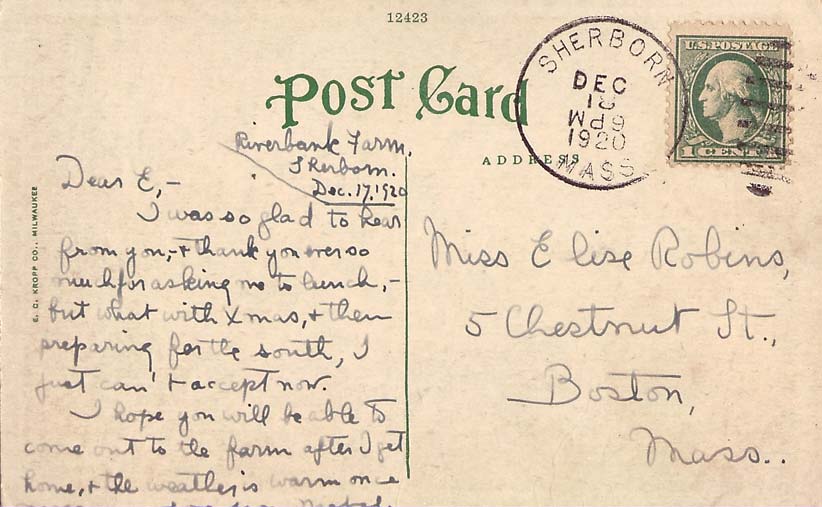 12423
POST CARD
ADDRESS
SHERBORN
DEC
18
9 PM
1920
MASS.
U.S. POSTAGE
1 CENT 1
E. C. KROPP CO., MILWAUKEE
Riverbank Farm,
Sherborn.
Dec. 17, 1920
Dear E,-
I was so glad to hear
from you,- + thank you ever so
much for asking me to lunch,-
but what with Xmas, + then
preparing for the south, I
just can't accept now.
I hope you will be able to
come out to the farm after I get
home, + the weather is warm once
Miss Elise Robins,
5 Chestnut St.,
Boston,
Mass..